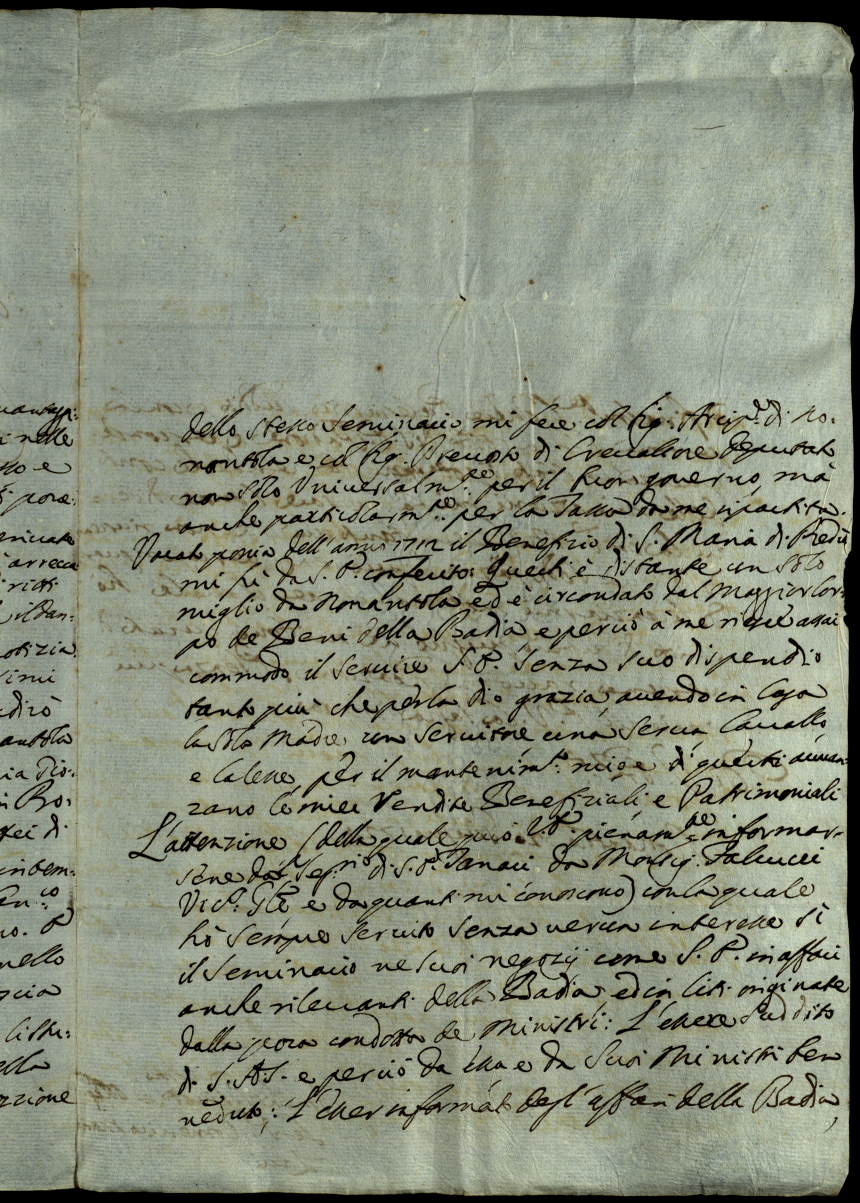 dello stesso Seminario mi fece col Sig. Arcip.te di No:
nantola e col Sig. Prevosto di Crevalcore Deputato
non solo Universalm.te per il buon governo, mà
anche particolarm.te per la Tassa da me ripartita.
Vacato poscia dell'anno 1712 il Benefizio di S. Maria di Redù
mi fù da S. P. conferito: Questi è distante un solo
miglio da Nonantola ed è circondato dal maggior Cor:
po de Beni della Badia e perciò à me riesce assai
commodo il servire S. P. senza suo dispendio
tanto più che per la dio grazia, avendo in Casa
la sola Madre, un servitore, una serva, Cavallo,
e Calesse per il mantenim.to mio e di questi avvan:
zano le miei Rendite Benefiziali e Patrimoniali
L'attenzione (della quale può V. P. pienam.te informar:
sene dal Seg.rio di S. P. Tanari da Monsig. Falcucci
Vic.o Gle e da quanti mi conoscono) con la quale
hò sempre servito senza verun interesse sì
il Seminario ne suoi negozij come S. P. in affari
anche rilevanti della Badia, ed in liti originate
dalla poca condotta de Ministri: L'essere suddito
di S. A. S. e perciò da essa e da suoi Ministri ben
veduto: L'esser informato degl'affari della Badia,